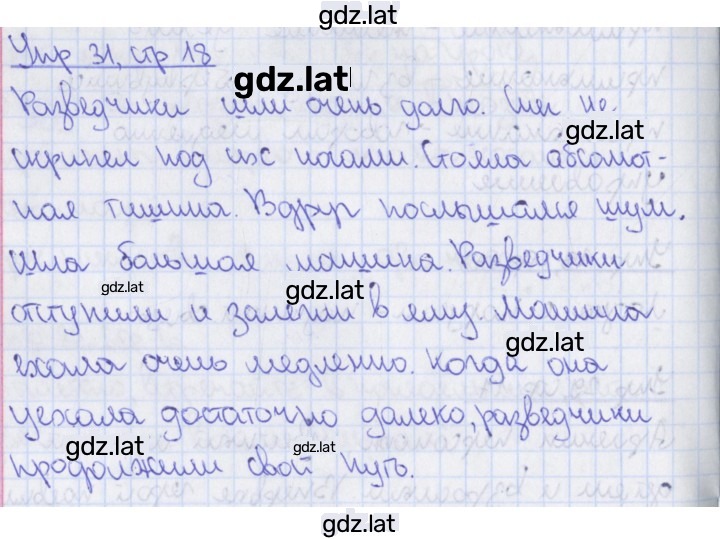 gdz.lat
Упр 31, стр 18
gdz.lat
Разведчики шли очень долго. Снег не
gdz.lat
скрипел под их ногами. Стояла абсолют-
ная тишина. Вдруг послышался шум.
Шла большая машина. Разведчики
gdz.lat gdz.lat
отступили и залегли в яму. Машина
gdz.lat
ехала очень медленно. Когда она
уехала достаточно далеко, разведчики
gdz.lat gdz.lat
продолжили свой путь.
gdz.lat